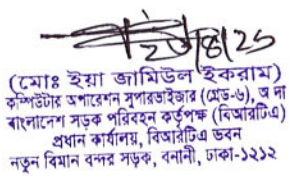 ২৬/৪/২৬
(মোঃ ইয়া জামিউল ইকরাম)
কম্পিউটার অপারেশন সুপারভাইজার (গ্রেড-৬), অ দা
বাংলাদেশ সড়ক পরিবহন কর্তৃপক্ষ (বিআরটিএ)
প্রধান কার্যালয়, বিআরটিএ ভবন
নতুন বিমান বন্দর সড়ক, বনানী, ঢাকা-১২১২